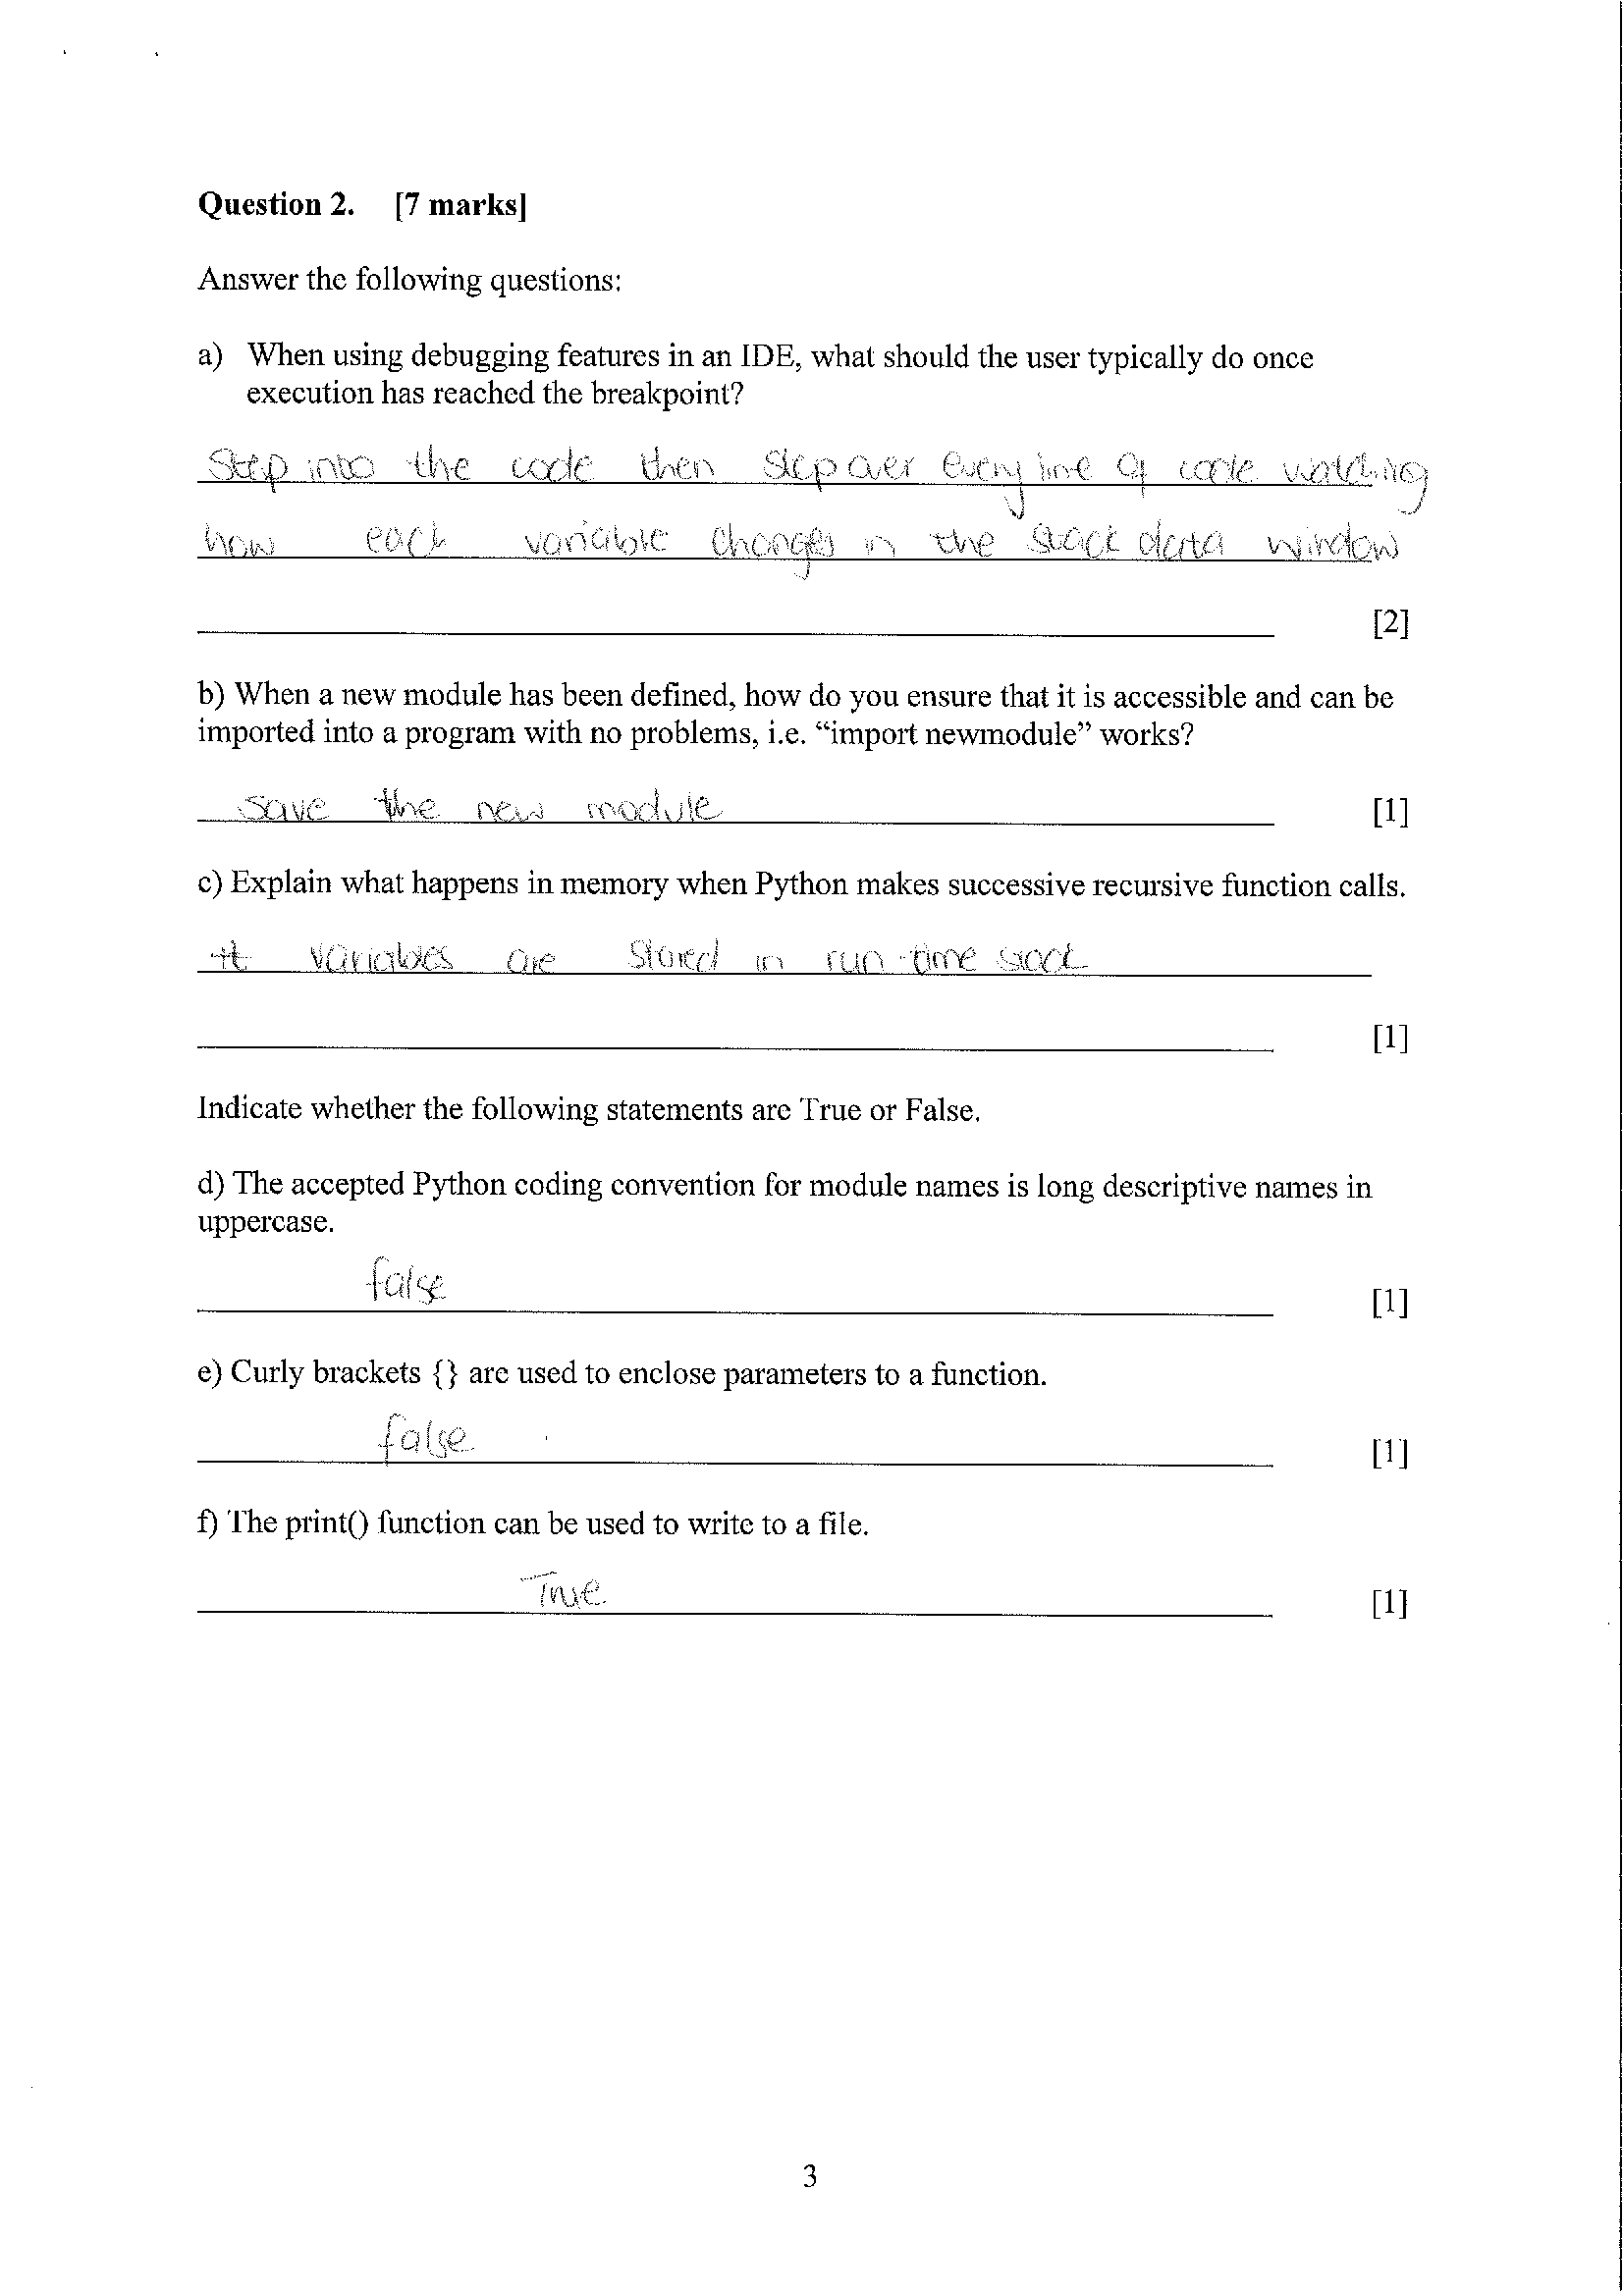 Question 2. [7 marks]
Answer the following questions:
a) When using debugging features in an IDE, what should the user typically do once
execution has reached the breakpoint?
Step into the code then step over every line of code watching
how each variable changes in the stack data window
[2]
b) When a new module has been defined, how do you ensure that it is accessible and can be
imported into a program with no problems, i.e. “import newmodule” works?
save the new module [1]
c) Explain what happens in memory when Python makes successive recursive function calls.
it variables are stored in run-time stack
[1]
Indicate whether the following statements are True or False.
d) The accepted Python coding convention for module names is long descriptive names in
uppercase.
false [1]
e) Curly brackets {} are used to enclose parameters to a function.
false [1]
f) The print() function can be used to write to a file.
True [1]
3